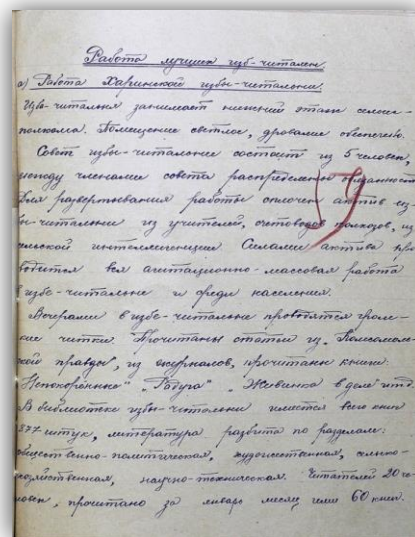 Работа лучших изб-читален.
а) Работа Харинской избы-читальни.
Изба-читальня занимает нижний этаж сельис-
полкома. Помещение светлое, дровами обеспечено.
Совет избы-читальни состоит из 5 человек,
между членами совета распределены обязанности
Для развертывания работы сплочен актив из-
бы-читальни из учителей, счетоводов колхозов, из
сельской интеллигенции Силами актива про
водится вся агитационно-массовая работа
в избе-читальне и среди населения.
Вечерами в избе-читальне проводятся гром-
кие читки. Прочитаны статьи из „Комсомоль-
кой правды", из журналов, прочитаны книги:
"Непокорённые" „Радуга" „Живинка в деле итд.
В библиотеке избы-читальни имеется всего книг
877 штук, литература разбита по разделам:
общественно-политическая, художественная, сельско-
хозяйственная, научно-техническая. Читателей 20 че-
ловек, прочитано за январь месяц ими 60 книг.